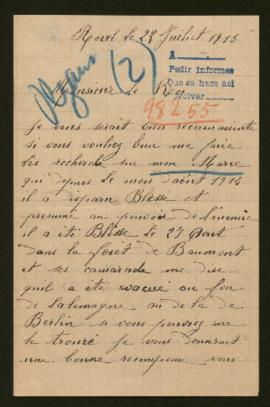 le 28 Juillet 1915
A
Pedir informes
Que se haca así
(2)
Monsieur le Roy
98255
Je vous serait bien reconnaissante
si vous vouliez bien me faire
les recherche sur mon Marie
qui depuis le mois d'aout 1914
il a disparu Blesse et
presumé au pouvoir de l'enemie
il a été Blesse le 27 Aout
dans la forêt de Beaumont
et ses camarade me dise
quil a été evacué au fon
de lalemagne
Berlin si vous pouvez me
le trouvé je vous donnerait
une bonne recompense vous